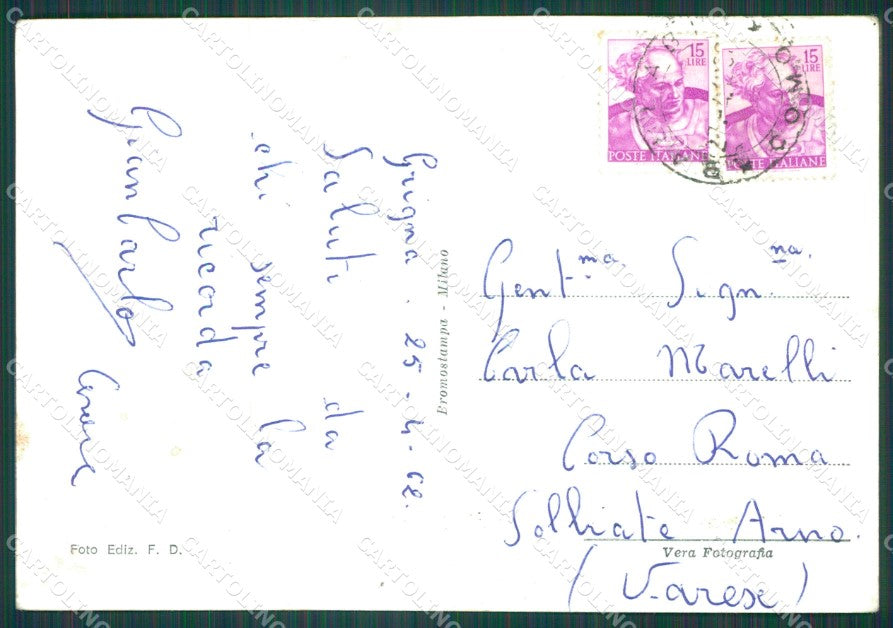 Grigna. 25-4-62.
Saluti da
chi sempre la
ricorda
Gian Carlo
Foto Ediz. F. D.
Bromostampa - Milano
15
LIRE
POSTE ITALIANE
15
LIRE
POSTE ITALIANE
Gent.ma Sign.na.
Carla Marelli
Corso Roma
Solbiate Arno.
Vera Fotografia
(Varese)
CARTOLINOMANIA